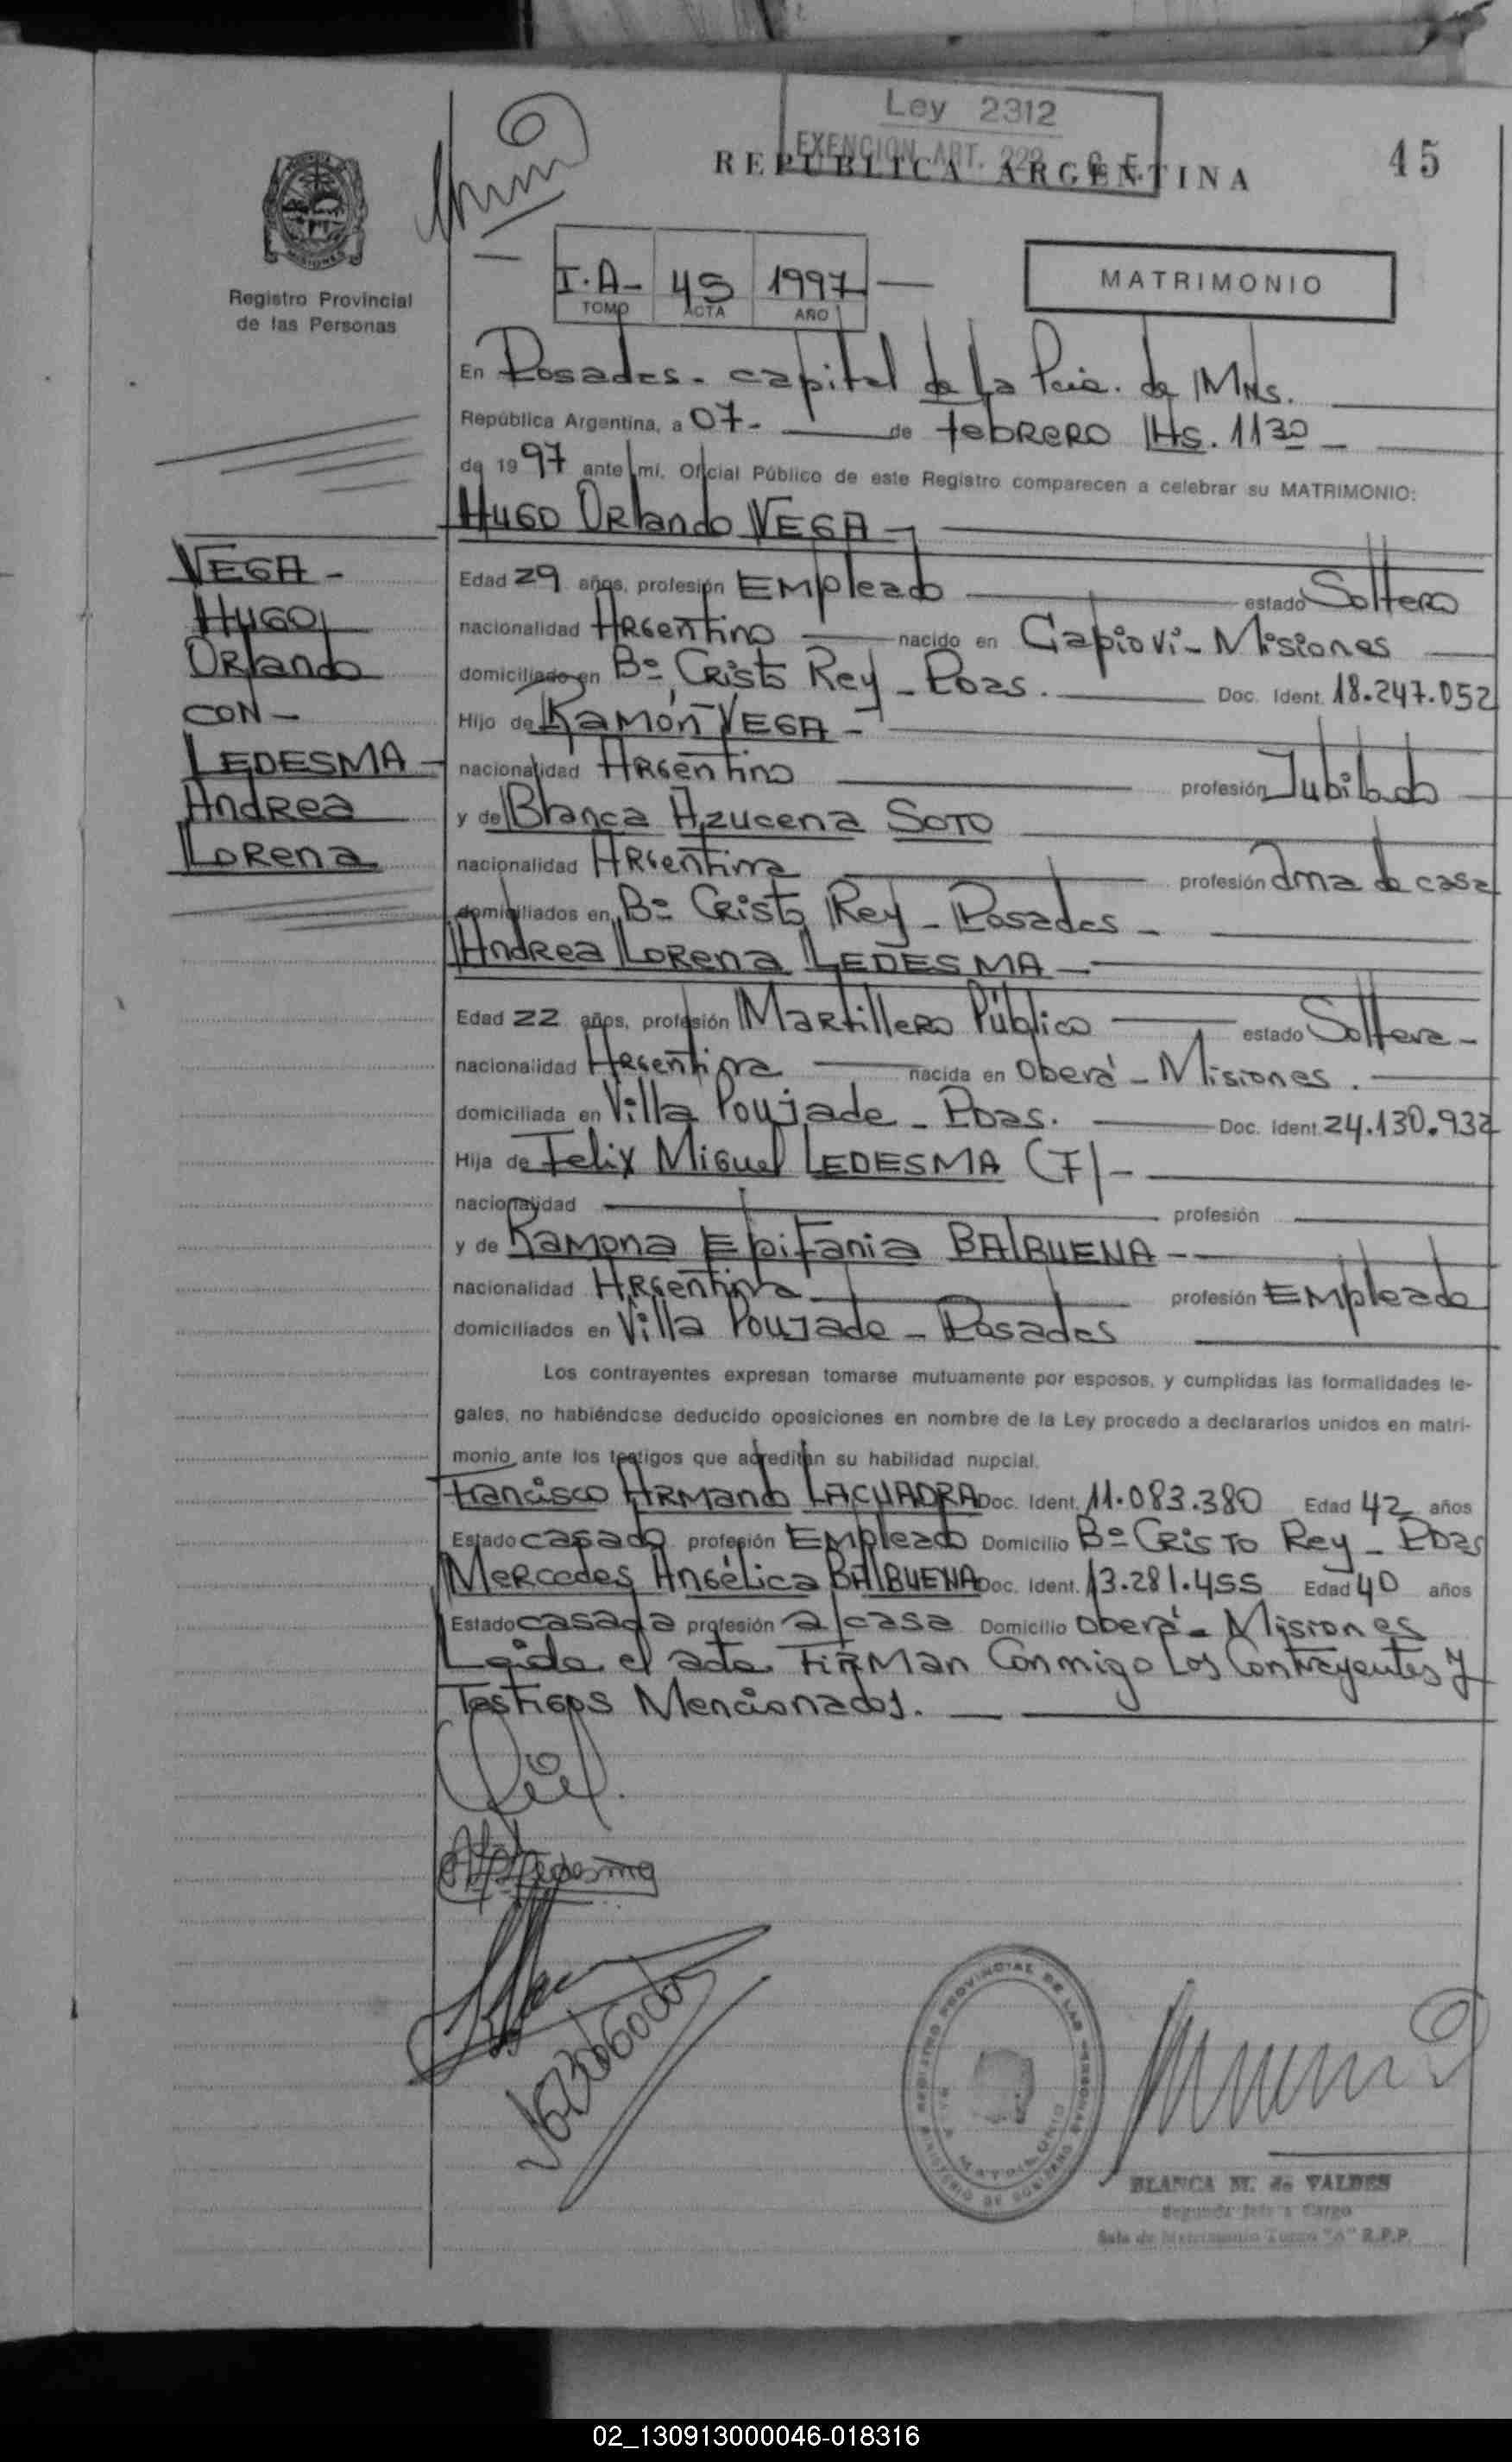 Ley 2312
EXENCION ART. 222
REPUBLICA ARGENTINA
45
MISIONES
Registro Provincial
de las Personas
I.A- 45 1997
TOMO ACTA AÑO
MATRIMONIO
En Posadas - capital de la Pcia. de Mnes.
República Argentina, a 07- de febrero Hs. 1130
de 1997 ante mí, Oficial Público de este Registro comparecen a celebrar su MATRIMONIO:
Hugo Orlando VEGA -
VEGA -
Hugo
Orlando
CON -
LEDESMA -
Andrea
Lorena
Edad 29 años, profesión Empleado estado Soltero
nacionalidad Argentino nacido en Capiovi - Misiones
domiciliado en Bº Cristo Rey - Pdas. Doc. Ident. 18.247.052
Hijo de Ramón VEGA -
nacionalidad Argentino profesión Jubilado
y de Blanca Azucena SOTO
nacionalidad Argentina profesión ama de casa
domiciliados en Bº Cristo Rey - Posadas -
Andrea Lorena LEDESMA -
Edad 22 años, profesión Martillero Público estado Soltera -
nacionalidad Argentina nacida en Oberá - Misiones.
domiciliada en Villa Poujade - Pdas. Doc. Ident. 24.130.932
Hija de Felix Miguel LEDESMA (F) -
nacionalidad profesión
y de Ramona Epifania BALBUENA -
nacionalidad Argentina profesión Empleada
domiciliados en Villa Poujade - Posadas
Los contrayentes expresan tomarse mutuamente por esposos, y cumplidas las formalidades le-
gales, no habiéndose deducido oposiciones en nombre de la Ley procedo a declararlos unidos en matri-
monio ante los testigos que acreditan su habilidad nupcial.
Francisco Armando LACUADRA Doc. Ident. 11.083.380 Edad 42 años
Estado casado profesión Empleado Domicilio Bº Cristo Rey - Pdas
Mercedes Angélica BALBUENA Doc. Ident. 13.281.455 Edad 40 años
Estado casada profesión a/casa Domicilio Oberá - Misiones
Leída el acta, Firman Conmigo Los Contrayentes y
Testigos Mencionados.
Ledesma
REGISTRO PROVINCIAL DE LAS PERSONAS
MINISTERIO DE GOBIERNO
MATRIMONIO
BLANCA M. de VALDES
Segunda Jefe a Cargo
Sala de Matrimonio Turno "A" R.P.P.
02_130913000046-018316